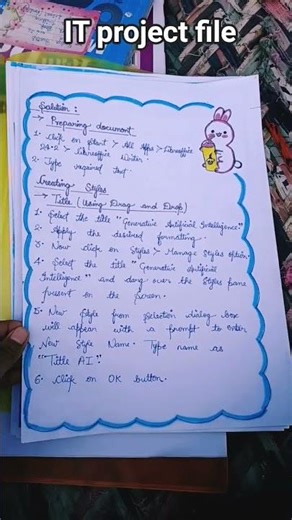 IT project file
Solution :
→ Preparing document
1. Click on Start > All Apps > Libreoffice
24.2 > Libreoffice Writer.
2. Type required text.
Creating Styles
→ Title (Using Drag and Drop)
1. Select the title "Generative Artificial Intelligence"
2. Apply the desired formatting.
3. Now click on Styles > Manage Styles option.
4. Select the title "Generative Artificial
Intelligence" and drag over the Styles pane
present on the screen.
5. New Style from Selection dialog box
will appear with a prompt to enter
New Style Name. Type name as
"Title AI".
6. Click on OK button.